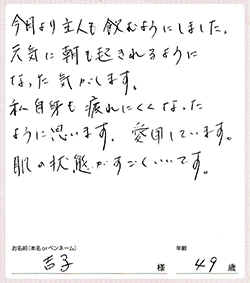 今月より主人も飲むようにしました。
元気に朝も起きれるように
なった気がします。
私自身も疲れにくくなった
ように思います。愛用しています。
肌の状態がすごくいいです。
お名前(本名orペンネーム) 年齢
吉子 様 49 歳